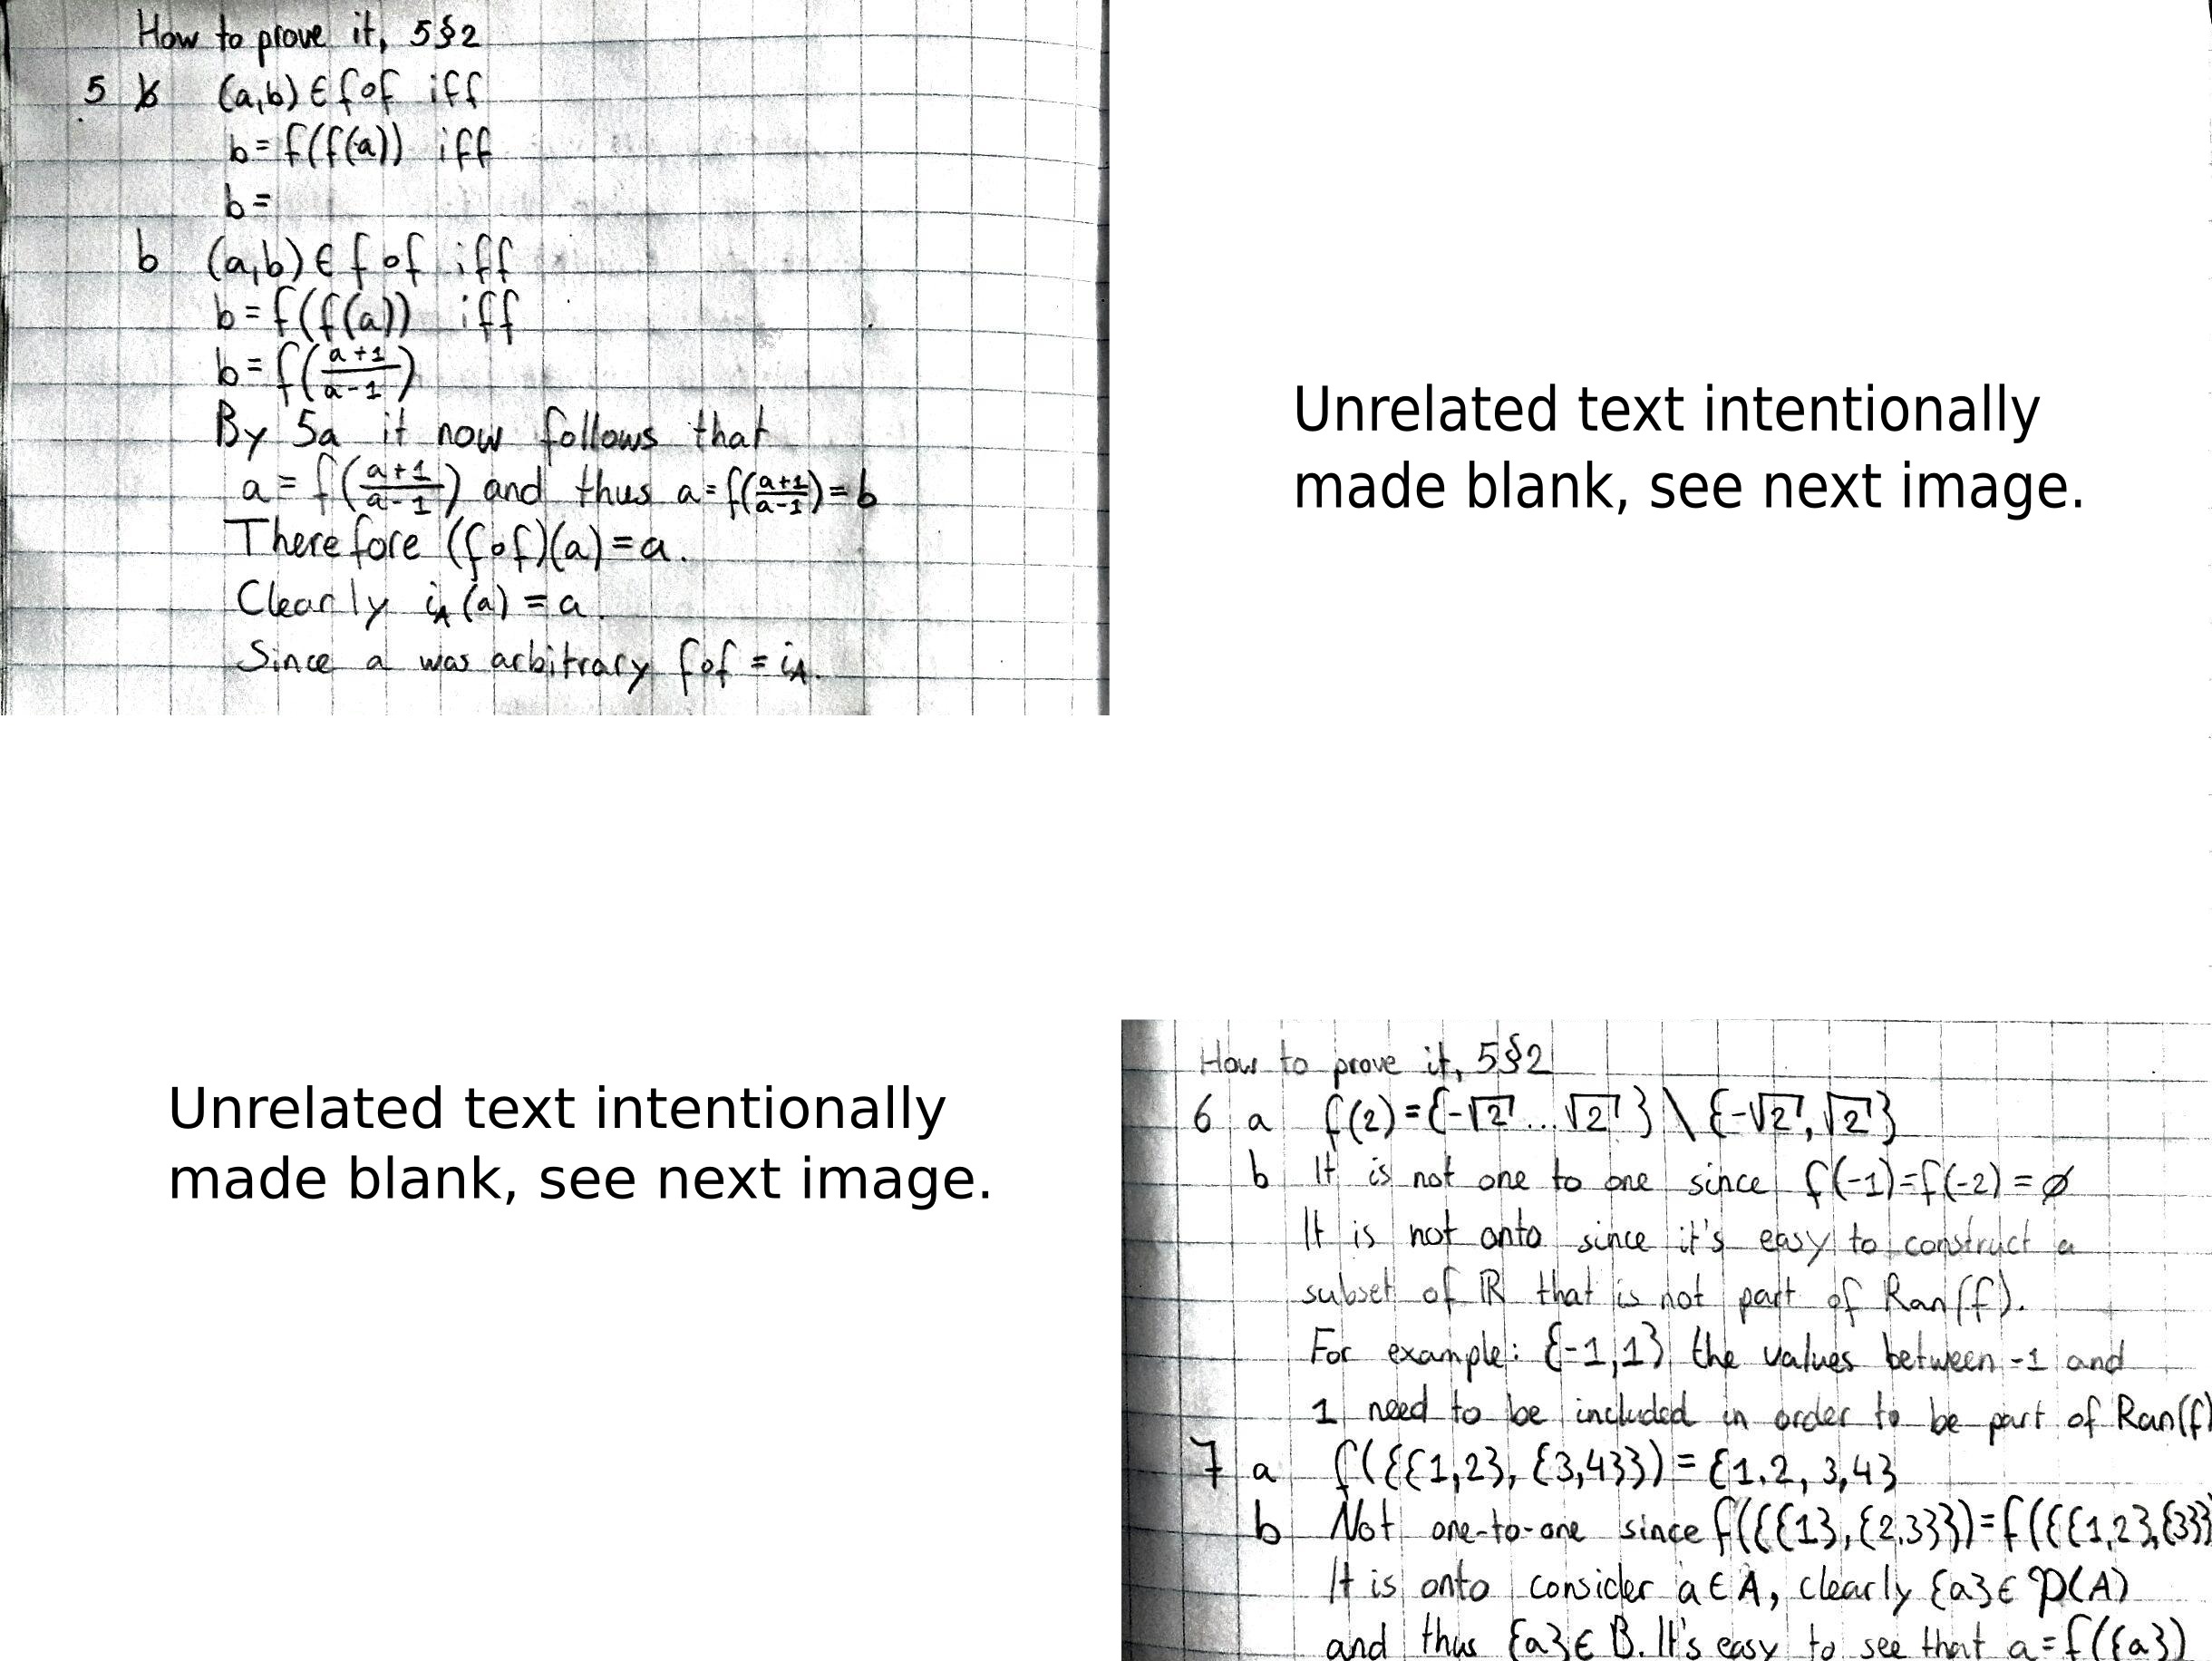 How to prove it, 5§2
5 b (a,b) ∈ f∘f iff
b = f(f(a)) iff
b =
b (a,b) ∈ f∘f iff
b = f(f(a)) iff
b = f((a+1)/(a-1))
By 5a it now follows that
a = f((a+1)/(a-1)) and thus a = f((a+1)/(a-1)) = b
Therefore (f∘f)(a) = a.
Clearly i_A(a) = a.
Since a was arbitrary f∘f = i_A.
Unrelated text intentionally
made blank, see next image.
Unrelated text intentionally
made blank, see next image.
How to prove it, 5§2
6 a f(2) = {-√2 ... √2} \ {-√2, √2}
b It is not one to one since f(-1) = f(-2) = ∅
It is not onto since it's easy to construct a
subset of ℝ that is not part of Ran(f).
For example: {-1,1} the values between -1 and
1 need to be included in order to be part of Ran(f)
7 a f({{1,2}, {3,4}}) = {1,2,3,4}
b Not one-to-one since f({{1},{2,3}}) = f({{1,2},{3}}
It is onto consider a ∈ A, clearly {a} ∈ P(A)
and thus {a} ∈ B. It's easy to see that a = f({a})